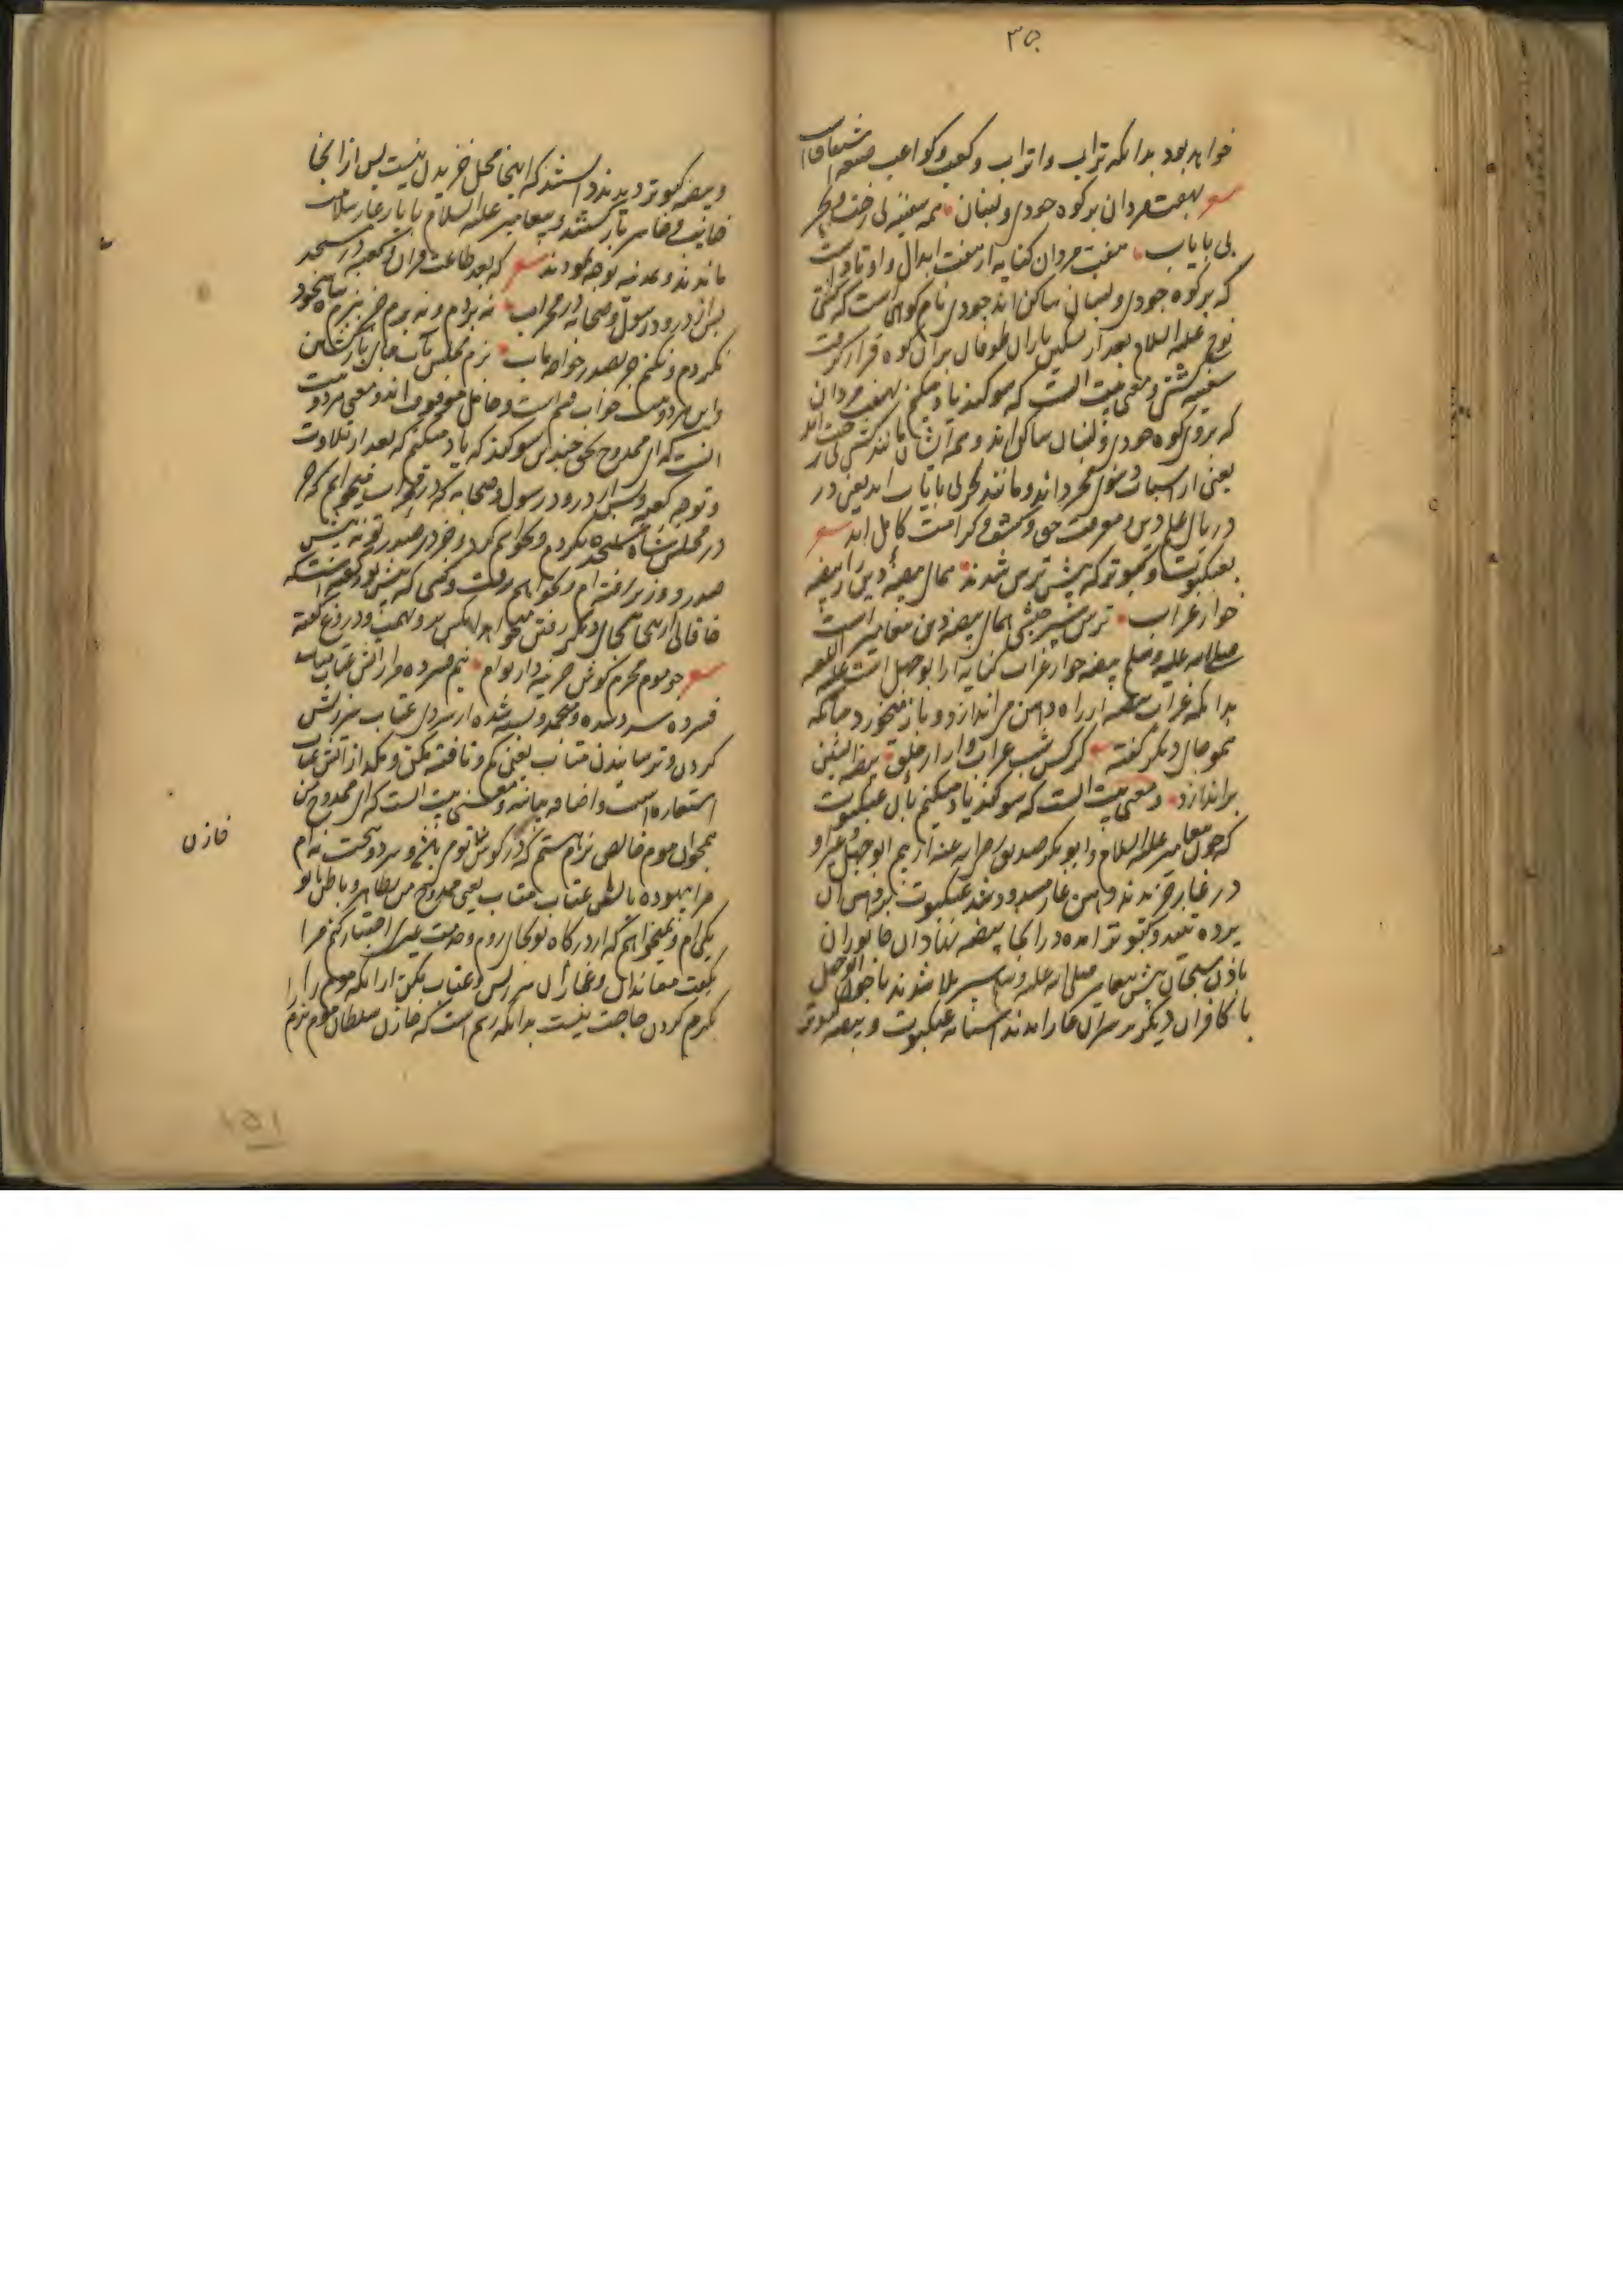 ۳۵
خواهد بود بدانکه تراب و اتراب و کعب و کواعب صنعة اشتقاق است
بهفت مردان بر کوه جودی و لبنان همه سفینه بی رخت و بحر
بی پایاب هفت مردان کنایه از هفت ابدال و اوتاد است
که بر کوه جودی و لبنان ساکن اند جودی نام کوهی است که کشتی
نوح علیه السلام بعد از تسکین باران طوفان بر آن کوه قرار گرفت
سفینه کشتی و معنی بیت آنست که سوگند یاد میکنم بهفت مردان
که بر کوه جودی و لبنان ساکن اند و همه ایشان مانند کشتی بی رخت اند
یعنی از اسباب دنیوی مجرد اند و مانند بحر بی پایاب اند یعنی در
دریای علم دین و معرفت حق و کشف و کرامت کامل اند شعر
بعنکبوت و کبوتر که پیش ترس شدند همای بیضه دین را ز بیضه
خوار غراب ترس سپر همای بیضه دین پیغامبر است
صلی الله علیه و سلم بیضه خوار غراب کنایه از ابوجهل است علیه اللعنه
بدانکه غراب بیضه از راه دهن می اندازد و باز میخورد چنانکه
بجای دیگر گفته کرکس شب غراب وار از حلق بیضه آتشین
براندازد و معنی بیت آنست که سوگند یاد میکنم بآن عنکبوت
که چون پیغامبر علیه السلام و ابوبکر صدیق رضی الله عنه از بیم ابوجهل و غیر او
در غار خزیدند و دهن غار مسدود شد عنکبوت بر دهن آن
پرده تنید و کبوتر آمده در آنجا بیضه نهاد آن جانوران
باذن سبحان پیش پیغامبر صلی الله علیه و سلم سپر بلا شدند تا چون ابوجهل
با کافران دیگر بر سر آن غار آمدند آشیانه عنکبوت و بیضه کبوتر
و بیضه کبوتر دیدند دانستند که اینجا محل خزیدن نیست پس از آنجا
خائب و خاسر باز گشتند و پیغامبر علیه السلام با یار غار سلامت
ماندند و بمدینه توجه نمودند شعر که بعد طاعت قرآن و کعبه در مسجد
پس از درود رسول و صحابه در محراب نه بردم و نه برم جز ببزم شاه سجود
نکردم و نکنم جز بصدر خواجه مآب بزم مجلس مآب جای بازگشتن
و این هر دو بیت جواب قسم است و ماقبل موقوف اند و معنی هر دو بیت
آنست که ای ممدوح بحق چندین سوگند که یاد میکنم که بعد از تلاوت
و توجه کعبه و پس از درود رسول و صحابه که در محراب میخوانم که جز
در مجلس شاه سجده نکردم و نخواهم کرد و جز در صدر تو نه پیش
صدر و وزیر رفته ام و نخواهم رفت و کسی که پیش تو گفته است که
خاقانی از اینجا بجای دیگر رفتن میخواهد آنکس بر من تهمت و دروغ گفته
شعر چو موم محرم گوش خزینه دار توام نیم فسرده مرا ز آتش عتاب متاب
فسرده سرد شده و منجمد و بسته شده از سردی عتاب سرزنش
کردن و ترسانیدن متاب یعنی گرم و تافته مکن و مگداز آتش عتاب
استعاره است و اضافه بیانیه و معنی بیت آنست که ای ممدوح من
همچو آن موم خالص نرم هستم که در گوش تو و سرد و سخت نه ام
مرا بیهوده بآتش عتاب متاب یعنی ممدوح من بظاهر و باطن با تو
یکی ام و نمیخواهم که از درگاه تو بجای روم و خدمت غیری اختیار کنم مرا
بگفت معاندان و غمازان سرزنش و عتاب مکن از آنکه موم را
بگرم کردن حاجت نیست بدانکه رسم است که خازن سلطان موم نرم
خازن
۱۵۱